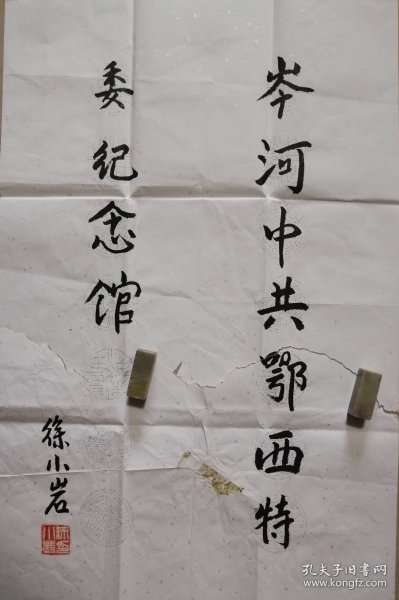 岑河中共鄂西特
委纪念馆
徐小岩
孔夫子旧书网
www.kongfz.com